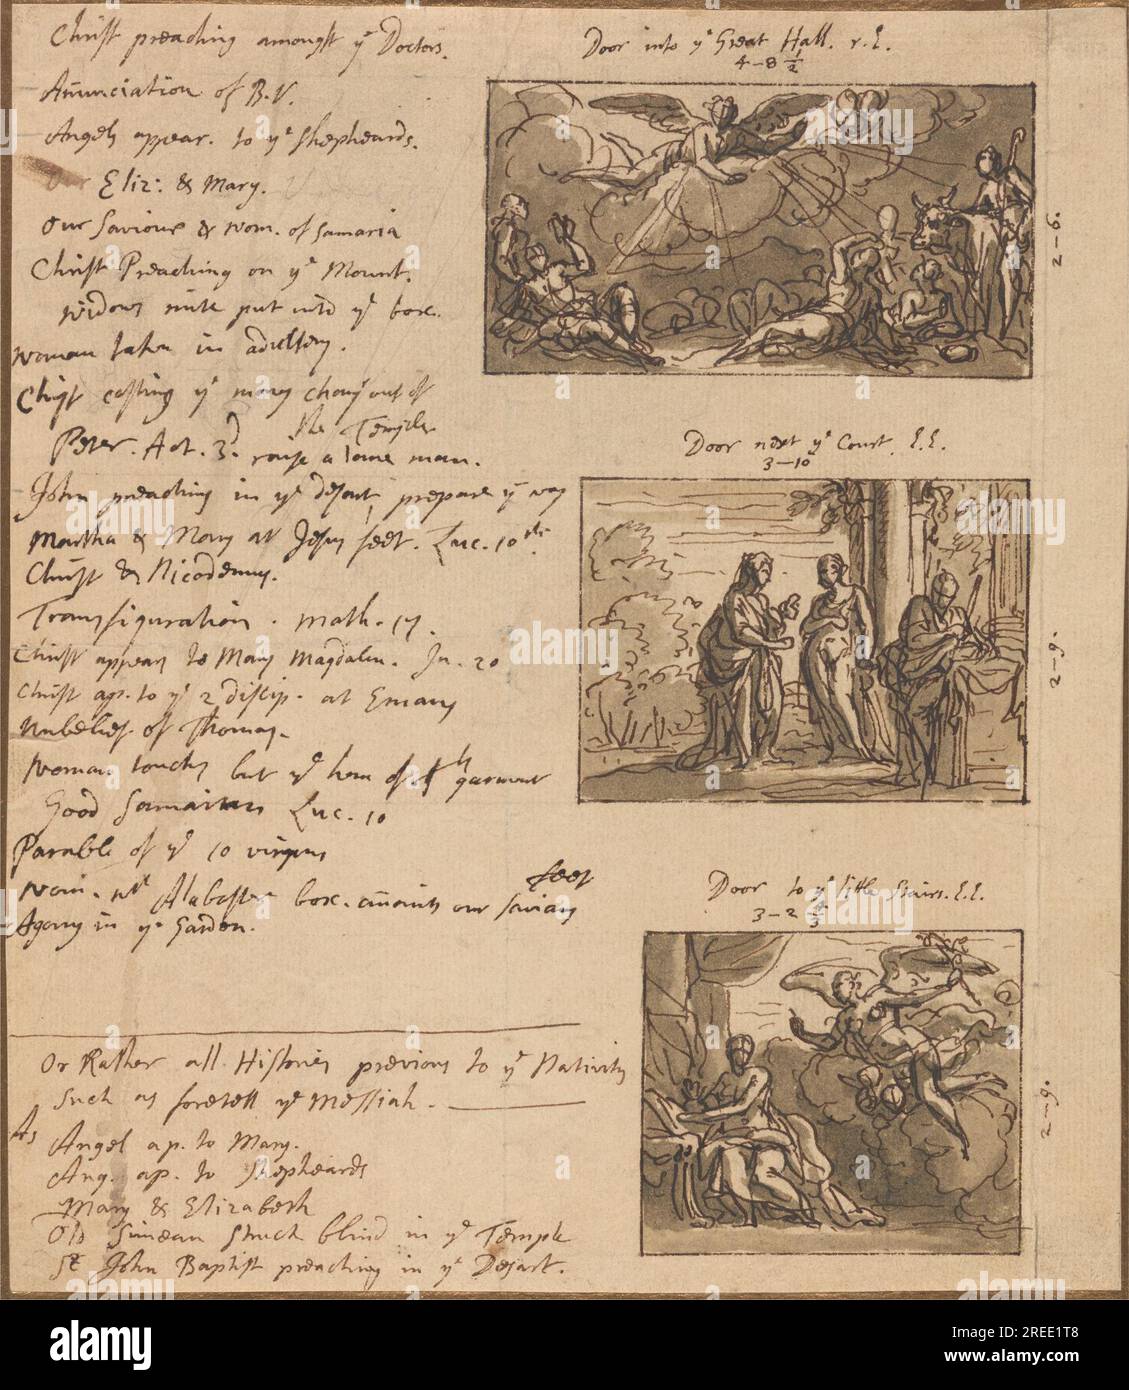 Christ preaching amongst ye Doctors.
Anunciation of B.V.
Angels appear. to ye shepheards.
Our Eliz: & Mary.
Our Saviour & wom. of Samaria
Christ Preaching on ye Mount.
widows mite put into ye box.
woman taken in adultery.
Christ casting ye mony chang out of
the Temple
Peter. Act. 3d. raise a lame man.
John preaching in ye desart, prepare ye way
Martha & Mary at Jesus feet. Luc. 10th
Christ & Nicodemus.
Transfiguration. Math. 17.
Christ appears to Mary Magdalen. Jn. 20
Christ ap. to ye 2 discip. at Emaus
Unbelief of Thomas.
Woman touches but ye hem of h garment
Good Samaritan Luc. 10
Parable of ye 10 virgins
feet
wom. wt Alabaster box. anoints our saviours
Agony in ye Garden.
Or Rather all Histories previous to ye Nativity
Such as foretell ye Messiah.
As
Angel ap. to Mary.
Ang. ap. to Shepheards
Mary & Elizabeth
Old Simeon struck blind in ye Temple
St John Baptist preaching in ye Desart.
Door into ye Great Hall. r.E.
4-8 1/2
2-6.
Door next ye Court. E.E.
3-10
2-9.
Door to ye little Stairs. E.E.
3-2
2-9.
alamy
Image ID: 2REE1T8
www.alamy.com